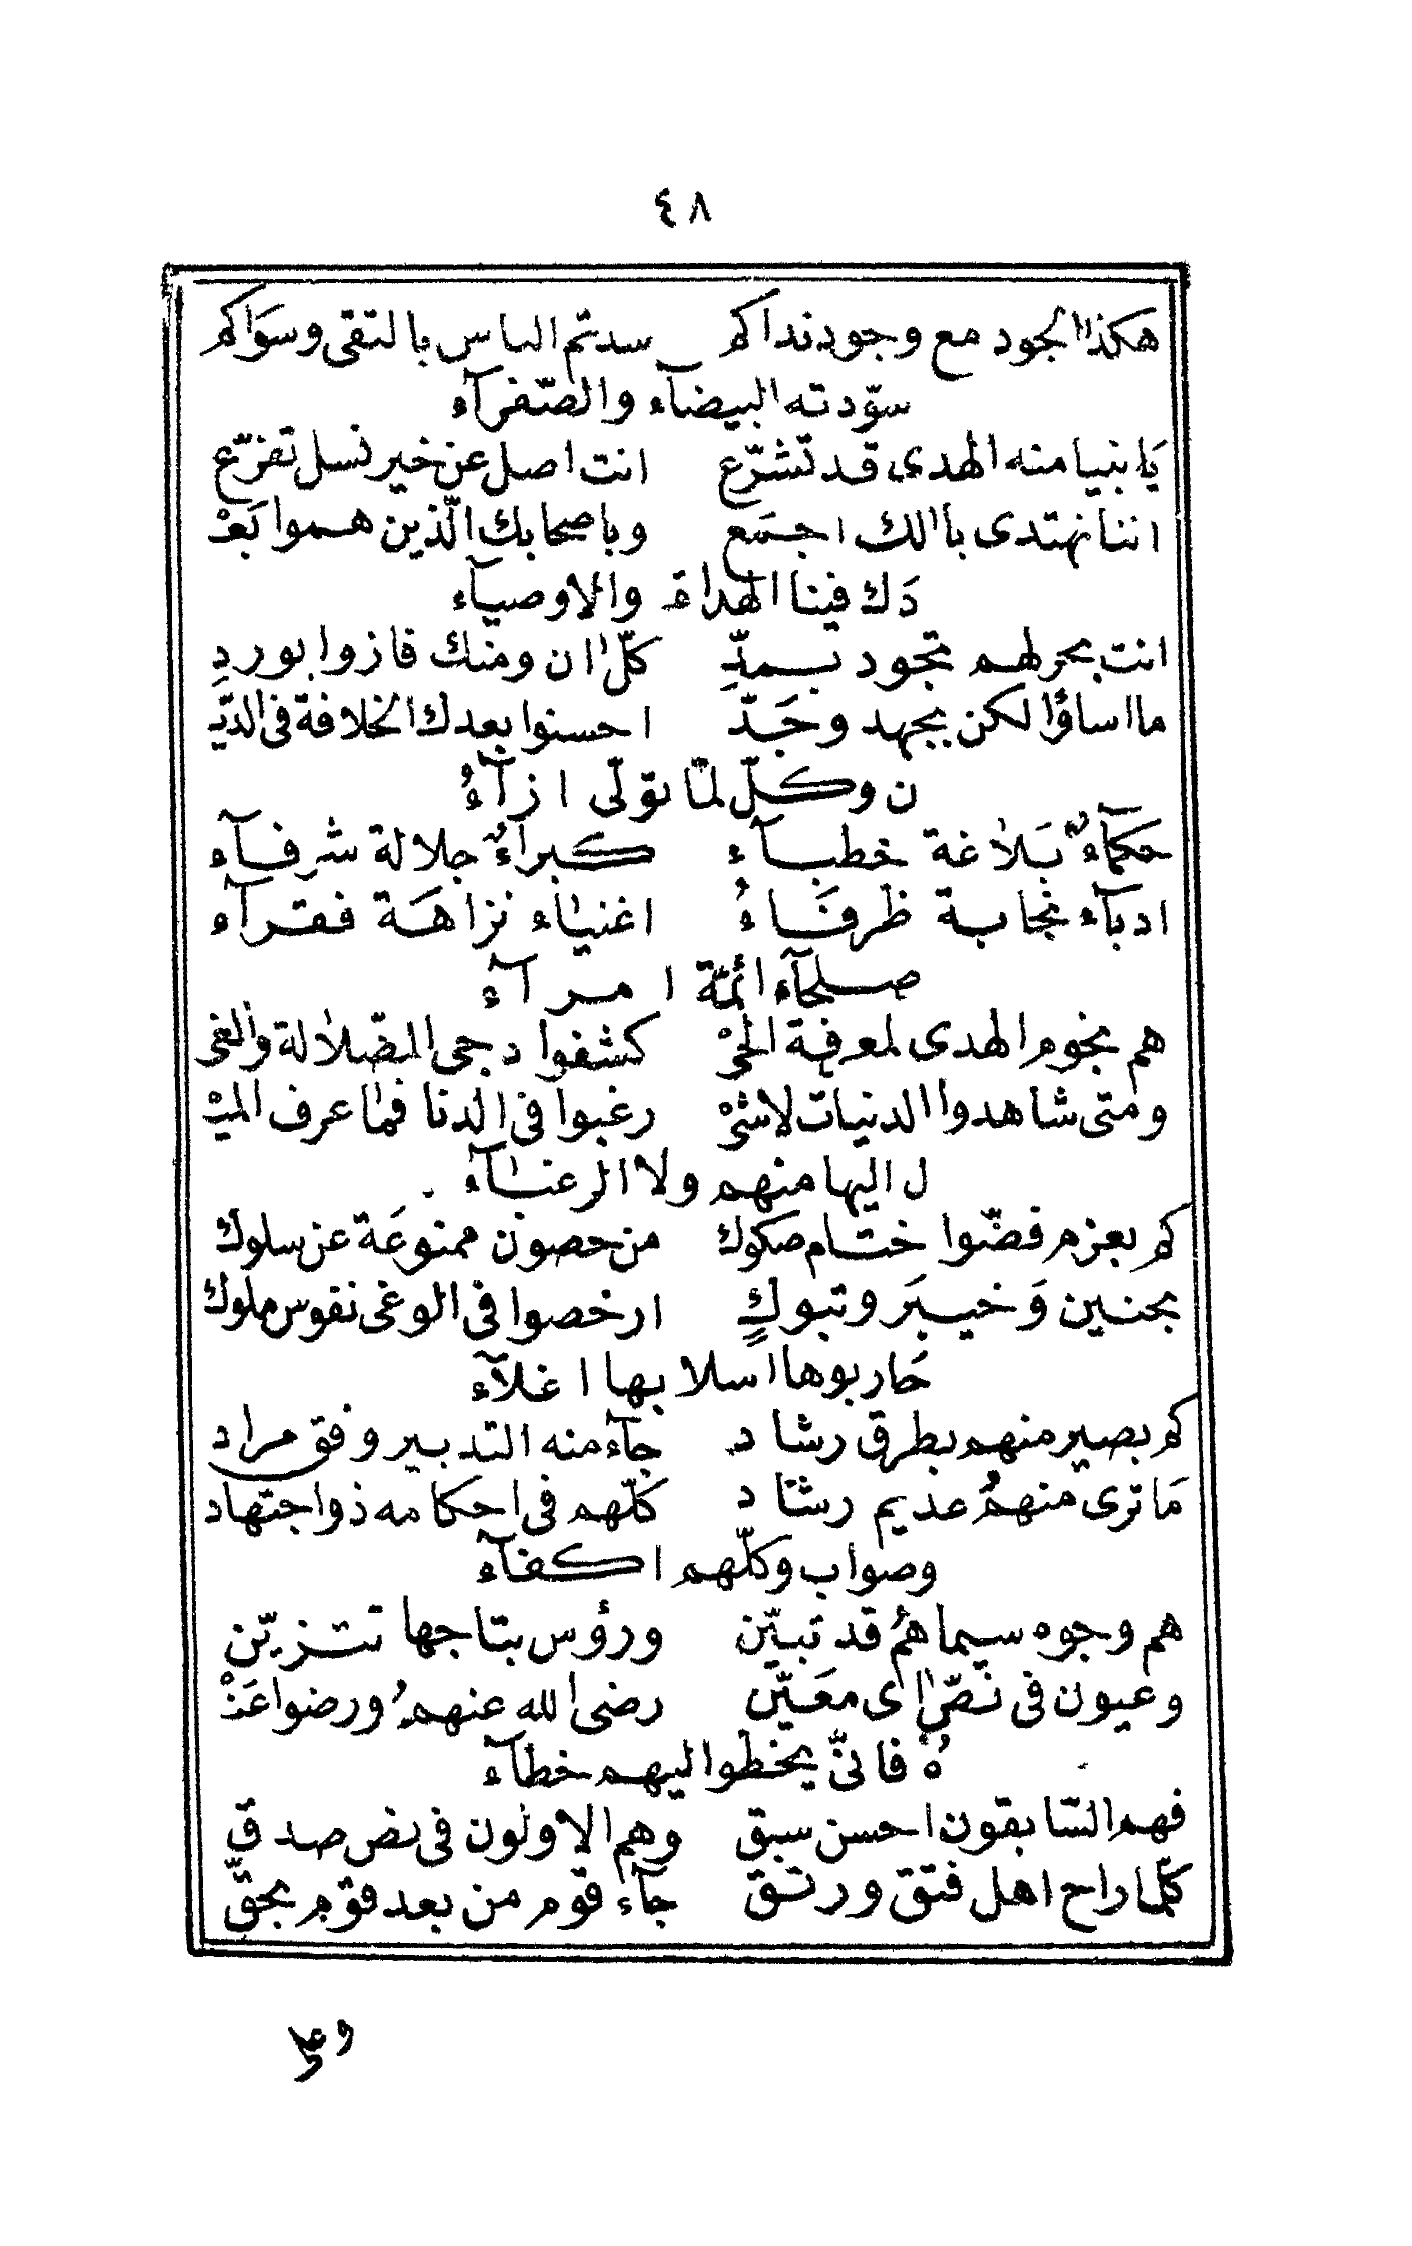 ٤٨
هكذا الجود مع وجود نداكم سدتم الناس بالتقى وسواكم
سوّدته البيضآء والصّفرآء
يا نبيا منه الهدى قد تشرّع انت اصل عن خير نسل تفرّع
اننا نهتدى بالك اجمَع وباصحابك الّذين هموا بَعْ
دَك فينا الهداة والاوصيآء
انت بحر لهم تجود بمدِّ كلّ ان ومنك فازوا بوردِ
ما اساؤا لكن بجهد وجَدّ احسنوا بعدك الخلافة فى الدّي
ن وكلّ لمّا تولّى ازآءُ
حكمآءٌ بَلاغة خطبآء كبرآءٌ جلالة شرفآء
ادبآء نجابة ظرفَاءُ اغنيآء نزاهَة فقرآء
صلحآء ائمّة امرآء
هم نجوم الهدى لمعرفة الحىْ كشفوا دجى الضّلالة والغى
ومتى شاهدوا الدنيات لاشىْ رغبوا فى الدنا فما عرف الميْ
ل اليها منهم ولا الرغبآء
كم بعزم فضّوا ختام صكوك من حصون ممنوعَة عن سلوك
بحنين وَخيبَر وتبوكٍ ارخصوا فى الوغى نفوس ملوك
حَاربوها اسلابها اغلآء
كم بصير منهم بطرق رشاد جآء منه التدبير وفق مراد
مَا ترى منهمُ عديم رشَاد كلّهم فى احكامه ذو اجتهاد
وصواب وكلّهم اكفآء
هم وجوه سيماهمُ قد تبيّن ورؤس بتاجها تتزيّن
وعيون فى نصّ اى معَيّن رضى الله عنهمُ ورضوا عَنْ
هُ فانىّ يخطوا اليهم خطآء
فهم السّابقون احسن سبق وهم الاولون فى نص صدق
كلّما راح اهل فتق ورتق جآء قوم من بعد قوم بحقّ
وعلى